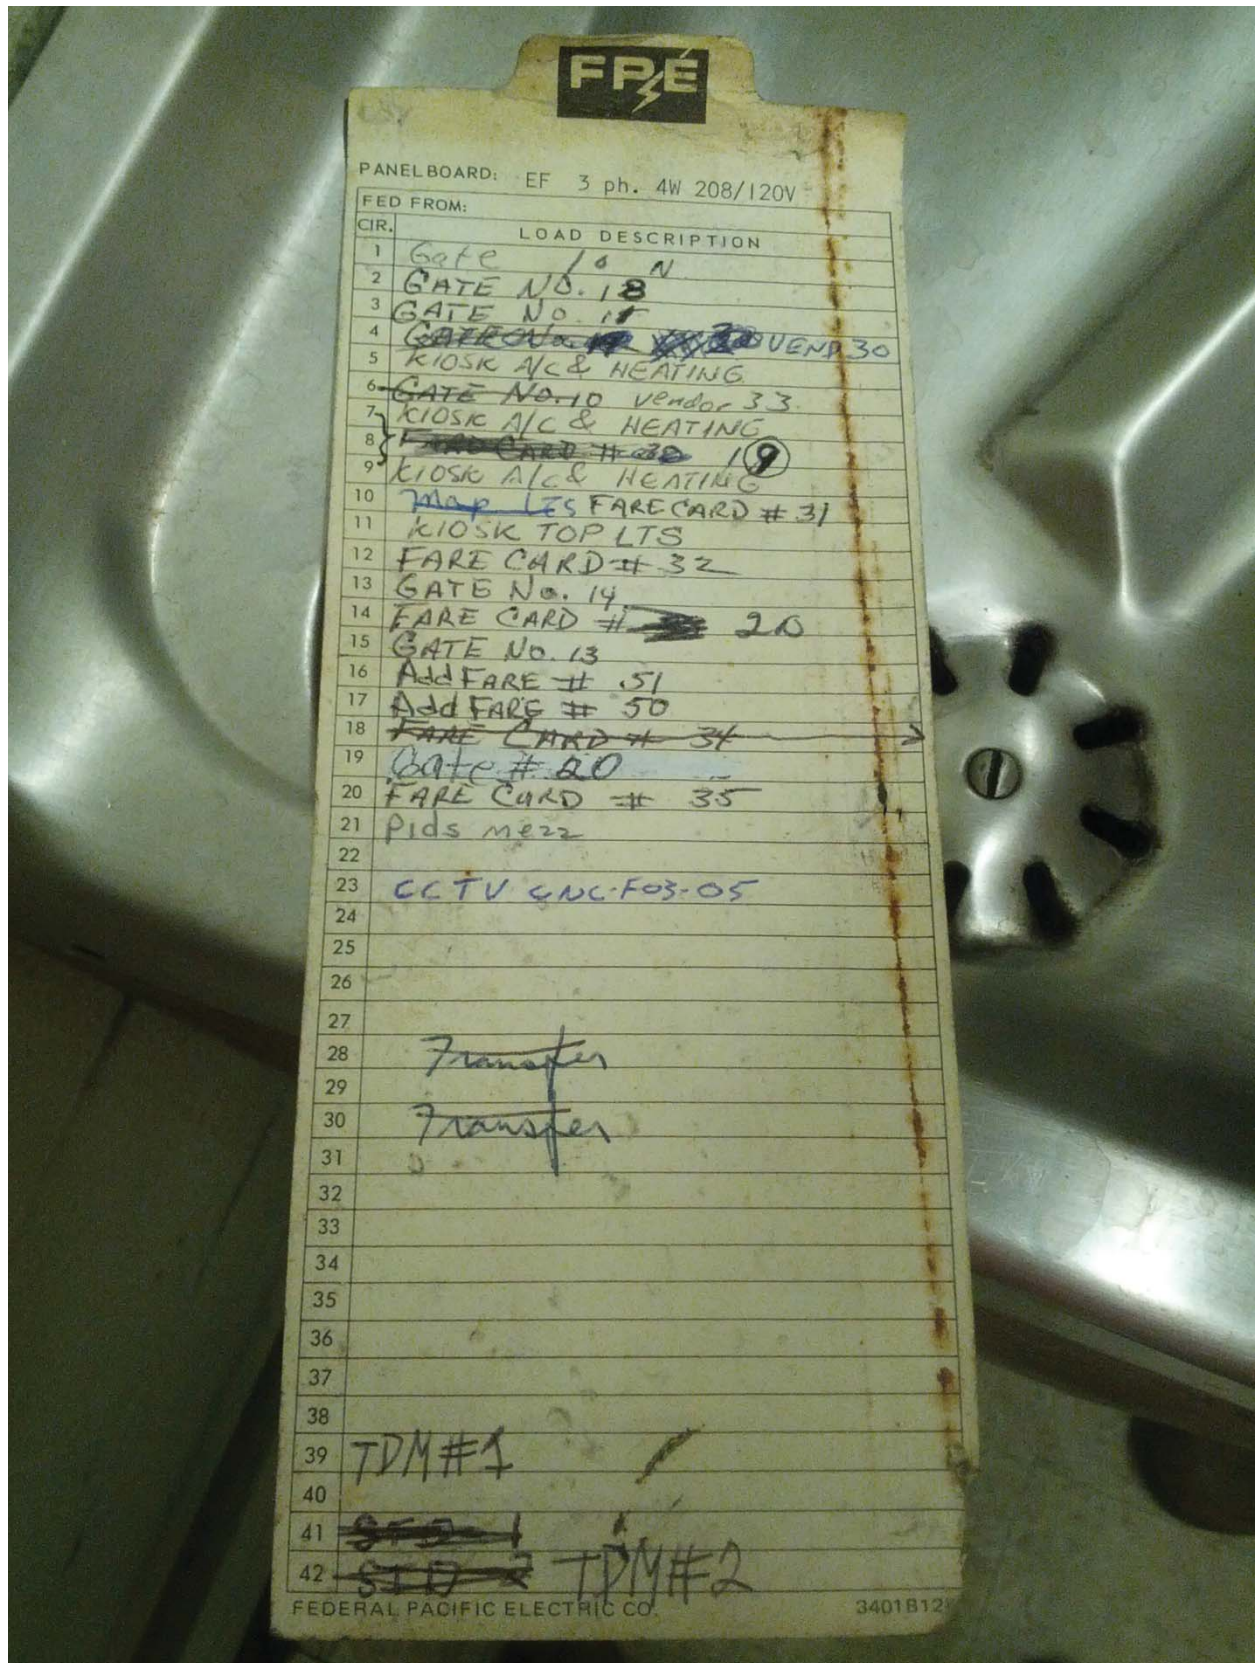 FPE
PANELBOARD: EF 3 ph. 4W 208/120V
FED FROM:
CIR. LOAD DESCRIPTION
1 Gate
2 GATE NO. 18
3 GATE NO.
4 VEND 30
5 KIOSK A/C & HEATING
6 GATE NO. 10 Vendor 33
7 KIOSK A/C & HEATING
8 FARE CARD # 19
9 KIOSK A/C & HEATING
10 Map LTS FARECARD # 31
11 KIOSK TOP LTS
12 FARE CARD # 32
13 GATE No. 14
14 FARE CARD # 20
15 GATE NO. 13
16 Add FARE # 51
17 Add FARE # 50
18 FARE CARD # 34
19 Gate # 20
20 FARE CARD # 35
21 Pids mezz
22
23 CCTV CNC-F03-05
24
25
26
27
28 Transfer
29
30 Transfer
31
32
33
34
35
36
37
38
39 TDM#1
40
41
42 TDM#2
FEDERAL PACIFIC ELECTRIC CO. 3401B12